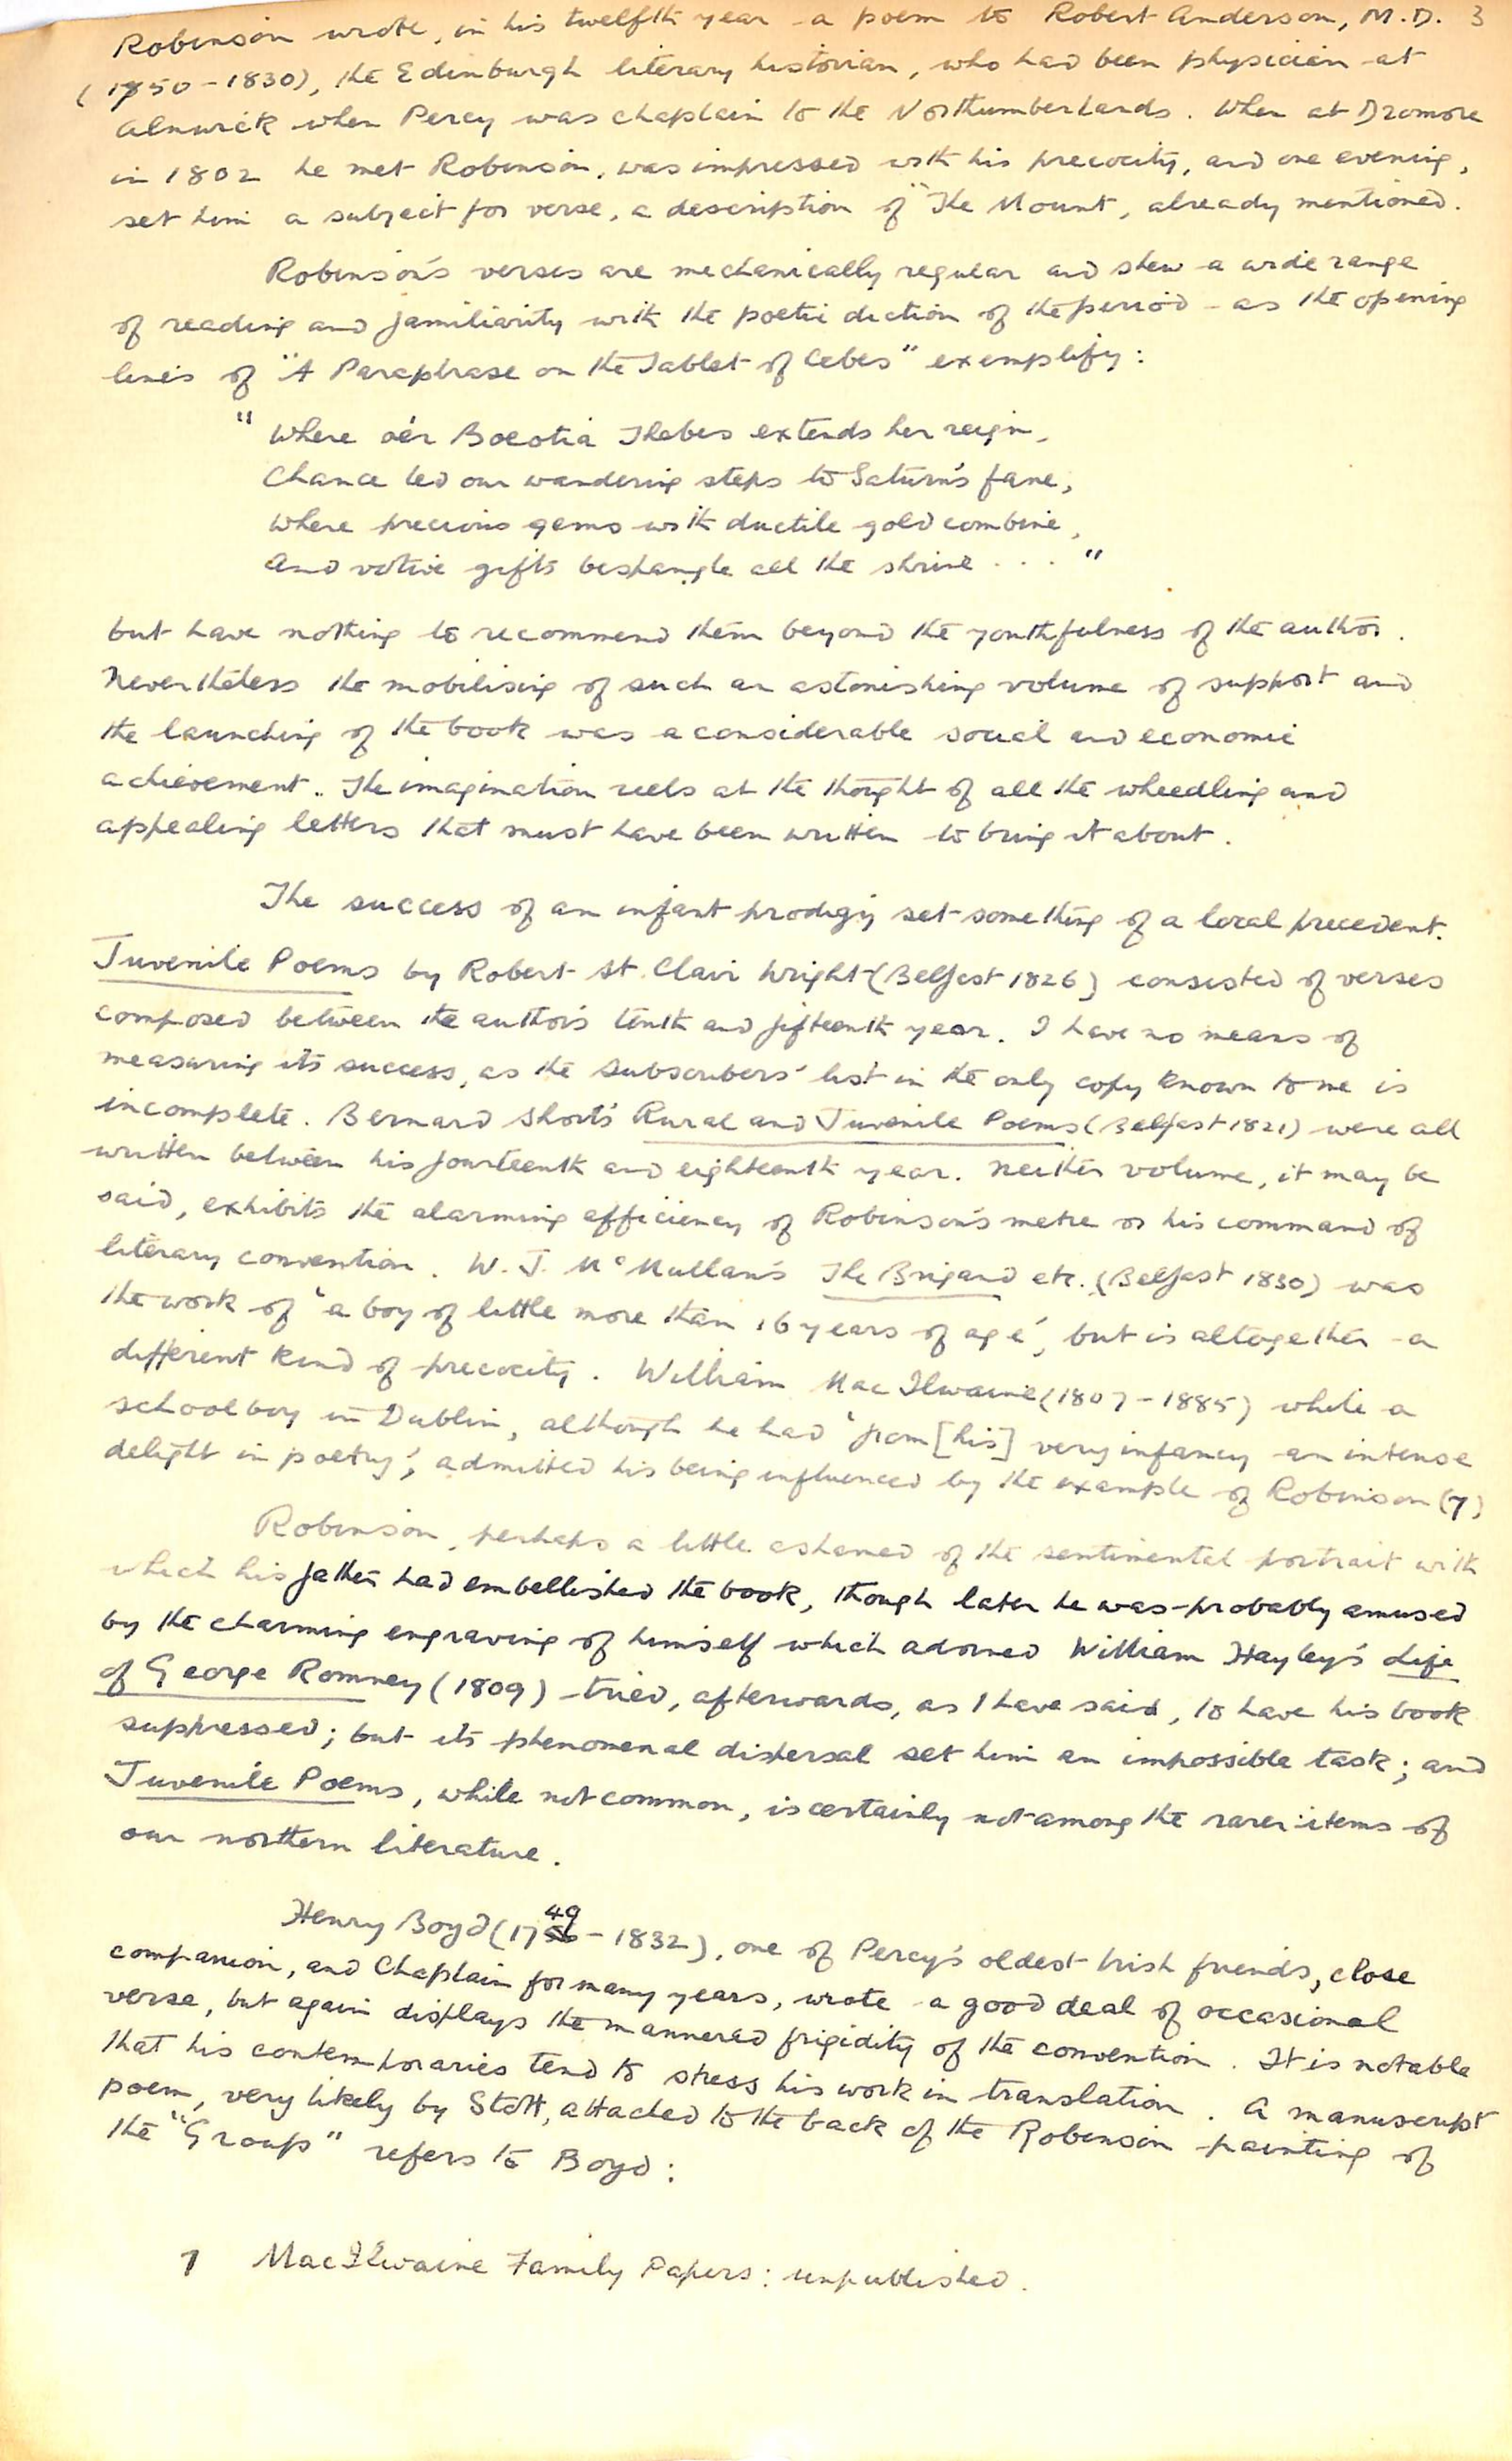 Robinson wrote, in his twelfth year a poem to Robert Anderson, M.D. 3
(1750-1830), the Edinburgh literary historian, who had been physician at
Alnwick when Percy was chaplain to the Northumberlands. When at Dromore
in 1802 he met Robinson, was impressed with his precocity, and one evening,
set him a subject for verse, a description of "The Mount, already mentioned.
Robinson's verses are mechanically regular and shew a wide range
of reading and familiarity with the poetic diction of the period - as the opening
lines of "A Paraphrase on the Tablet of Cebes" exemplify:
" Where o'er Boeotia Thebes extends her reign,
Chance led our wandering steps to Saturn's fane,
Where precious gems with ductile gold combine,
And votive gifts bespangle all the shrine . . . "
but have nothing to recommend them beyond the youthfulness of the author.
Nevertheless the mobilising of such an astonishing volume of support and
the launching of the book was a considerable social and economic
achievement. The imagination reels at the thought of all the wheedling and
appealing letters that must have been written to bring it about.
The success of an infant prodigy set something of a local precedent.
Juvenile Poems by Robert St. Clair Wright (Belfast 1826) consisted of verses
composed between the author's tenth and fifteenth year. I have no means of
measuring its success, as the subscribers' list in the only copy known to me is
incomplete. Bernard Short's Rural and Juvenile Poems (Belfast 1821) were all
written between his fourteenth and eighteenth year. Neither volume, it may be
said, exhibits the alarming efficiency of Robinson's metre or his command of
literary convention. W. J. McMullan's The Brigand etc. (Belfast 1830) was
the work of 'a boy of little more than 16 years of age', but is altogether a
different kind of precocity. William MacIlwaine (1807-1885) while a
schoolboy in Dublin, although he had 'from [his] very infancy an intense
delight in poetry', admitted his being influenced by the example of Robinson (7)
Robinson, perhaps a little ashamed of the sentimental portrait with
which his father had embellished the book, though later he was probably amused
by the charming engraving of himself which adorned William Hayley's Life
of George Romney (1809) - tried, afterwards, as I have said, to have his book
suppressed; but its phenomenal dispersal set him an impossible task; and
Juvenile Poems, while not common, is certainly not among the rarer items of
our northern literature.
Henry Boyd (1749-1832), one of Percy's oldest Irish friends, close
companion, and Chaplain for many years, wrote a good deal of occasional
verse, but again displays the mannered frigidity of the convention. It is notable
that his contemporaries tend to stress his work in translation. A manuscript
poem, very likely by Stott, attached to the back of the Robinson painting of
the "Group" refers to Boyd:
7 MacIlwaine Family Papers: unpublished.